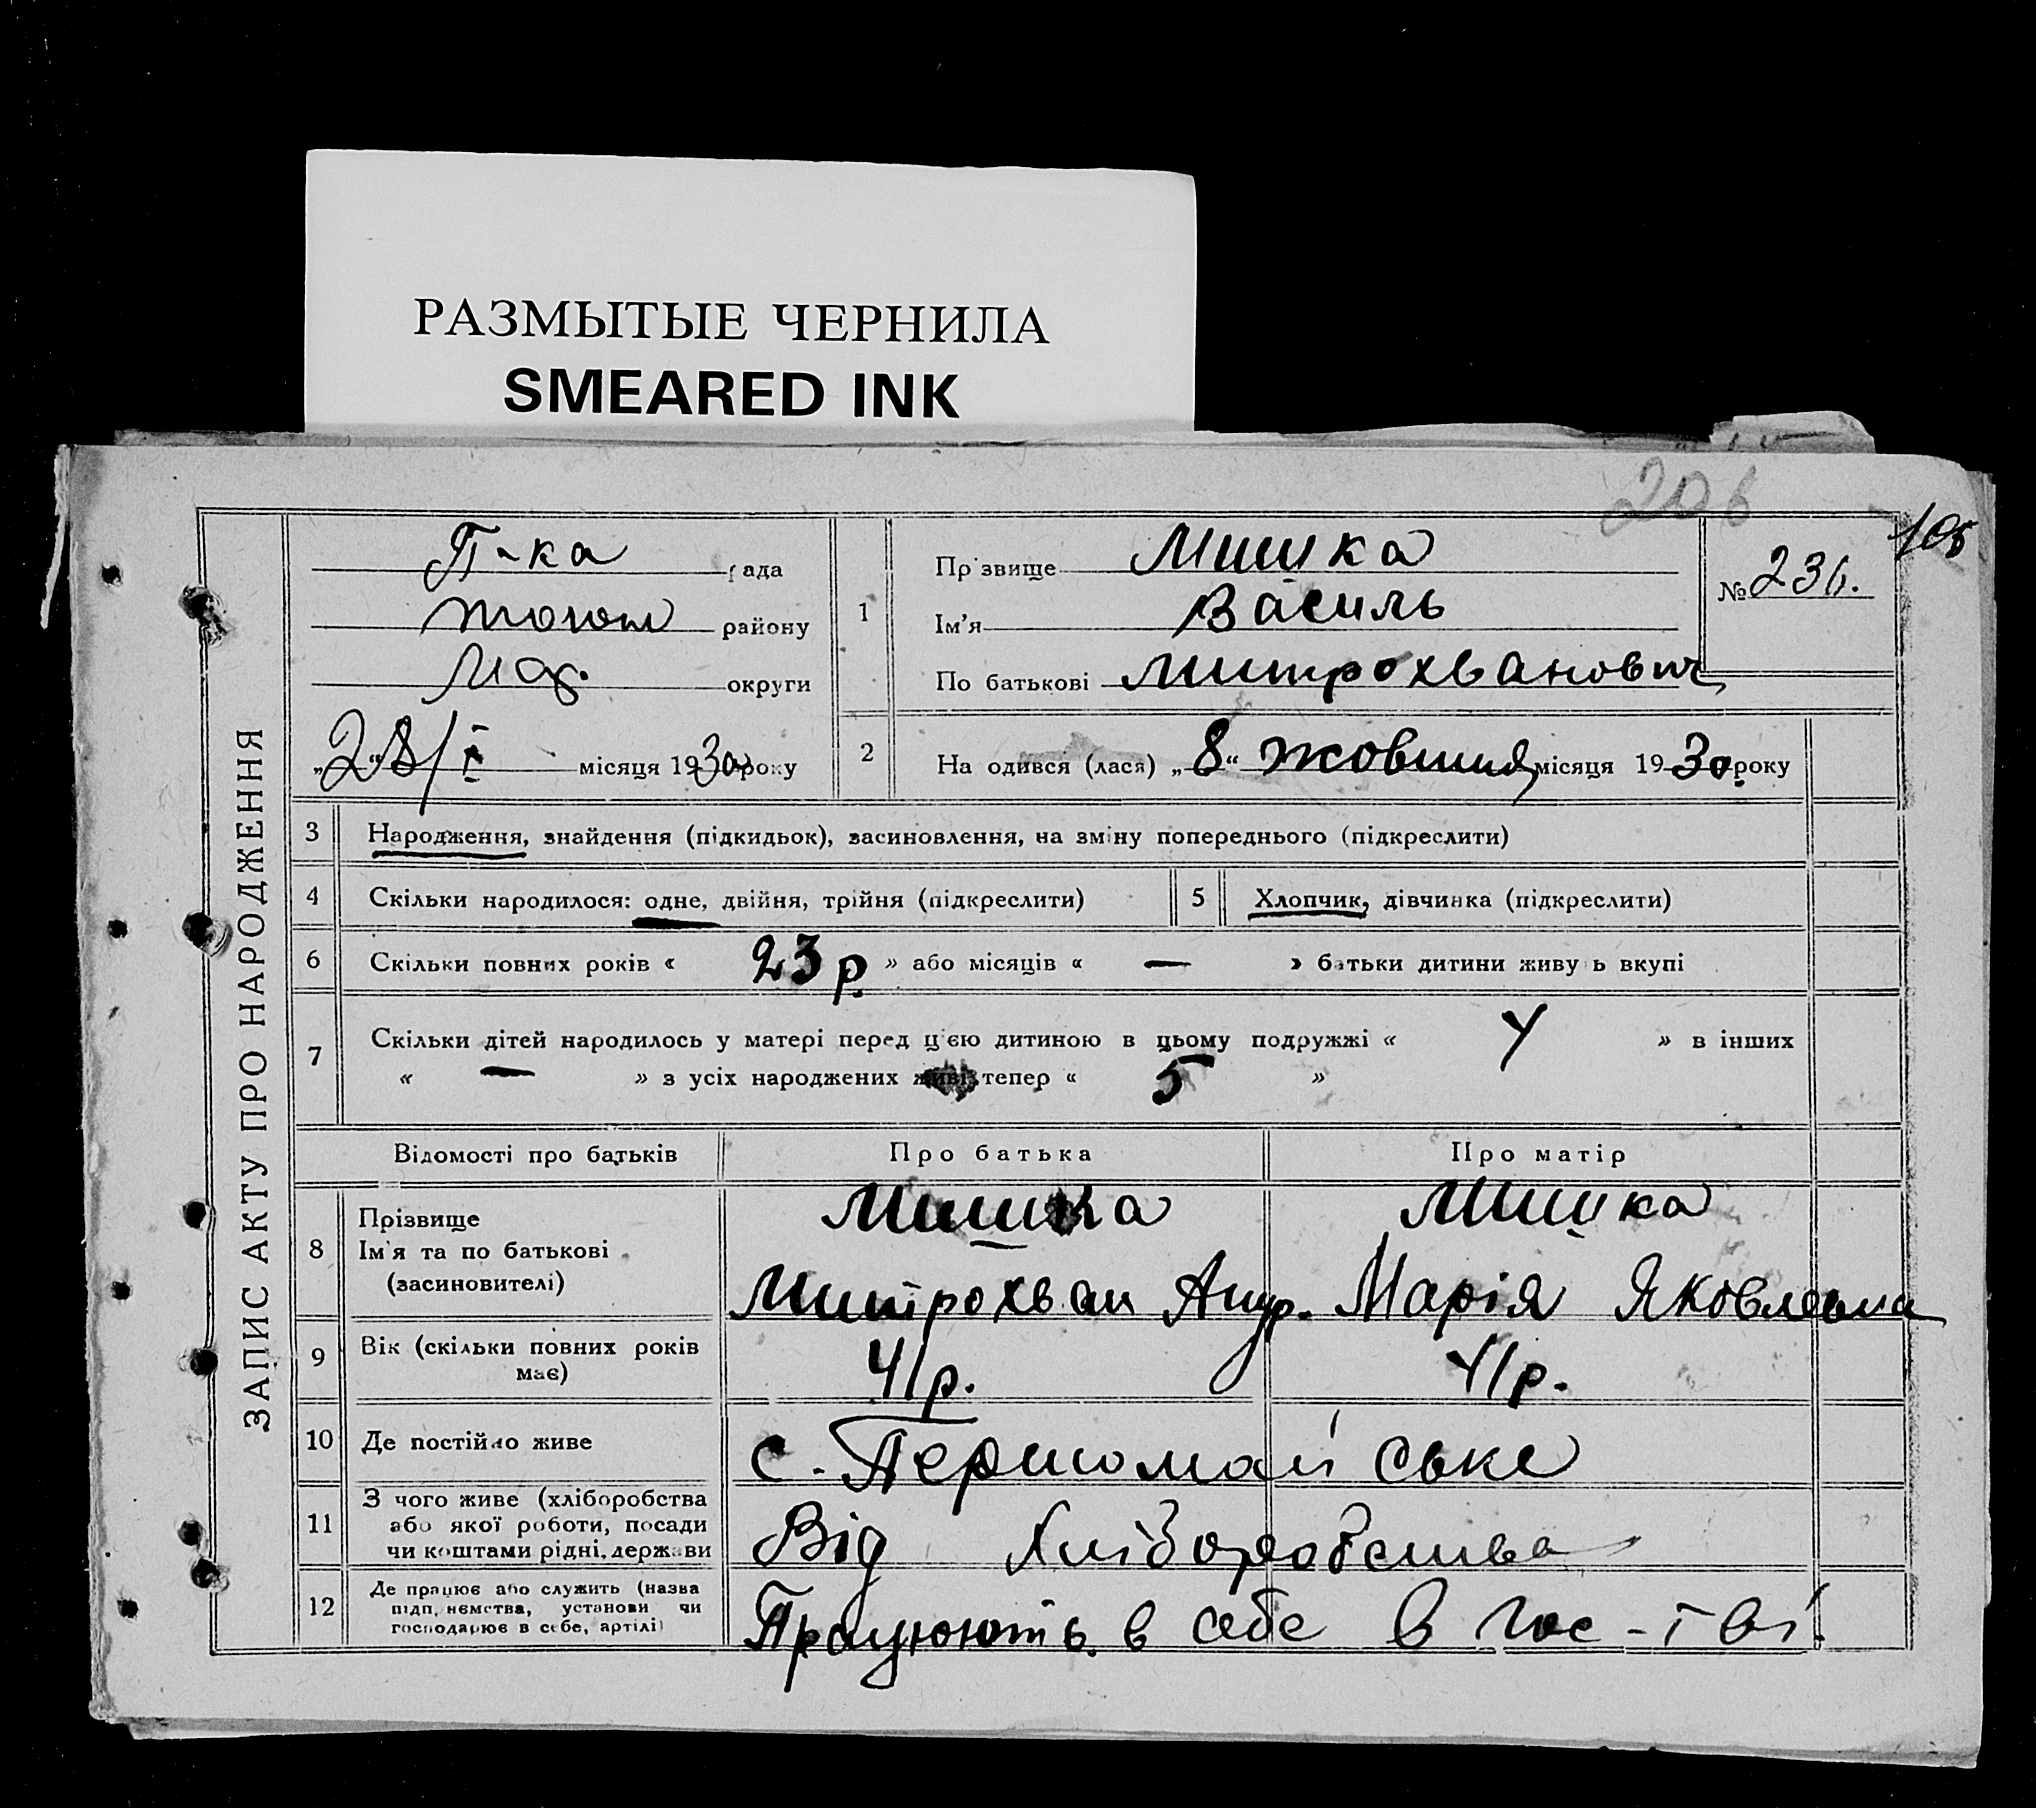 РАЗМЫТЫЕ ЧЕРНИЛА
SMEARED INK
206
105
ЗАПИС АКТУ ПРО НАРОДЖЕННЯ
П-ка рада
району
округи
„28/I місяця 1930 року
1
Прізвище Мишка
Ім'я Василь
По батькові Митрохванович
№ 236.
2
На одився (лася) „8“ жовтня місяця 1930 року
3 Народження, знайдення (підкидьок), засиновлення, на зміну попереднього (підкреслити)
4 Скільки народилося: одне, двійня, трійня (підкреслити)
5 Хлопчик, дівчинка (підкреслити)
6 Скільки повних років « 23 р » або місяців « — » батьки дитини живуть вкупі
7 Скільки дітей народилось у матері перед цією дитиною в цьому подружжі « 4 » в інших
« — » з усіх народжених живі тепер « 5 »
Відомості про батьків Про батька Про матір
8 Прізвище
Ім'я та по батькові
(засиновителі)
Мишка Мишка
Митрохван Андр. Марія Яковлевна
9 Вік (скільки повних років
має)
41р. 41р.
10 Де постійно живе с. Першомайське
11 З чого живе (хліборобства
або якої роботи, посади
чи коштами рідні, держави
Від Хліборобства
12 Де працює або служить (назва
підп,немства, установи чи
господарює в себе, артілі)
Працюють в себе в гос-тві.